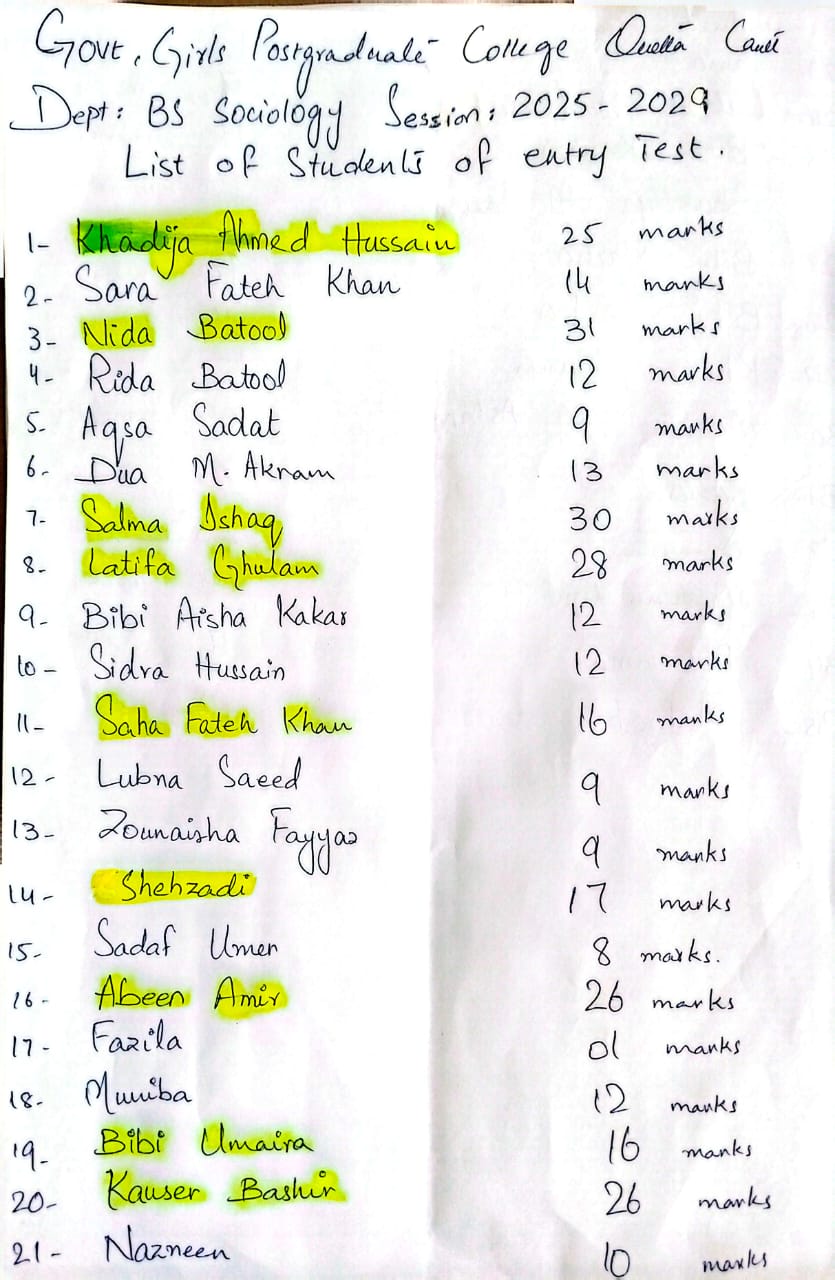 Govt. Girls Postgraduate College Quetta Cantt
Dept: BS Sociology Session: 2025-2029
List of Students of entry Test.
1- Khadija Ahmed Hussain 25 marks
2- Sara Fateh Khan 14 marks
3- Nida Batool 31 marks
4- Rida Batool 12 marks
5- Aqsa Sadat 9 marks
6- Dua M. Akram 13 marks
7- Salma Ishaq 30 marks
8- Latifa Ghulam 28 marks
9- Bibi Aisha Kakar 12 marks
10- Sidra Hussain 12 marks
11- Saha Fateh Khan 16 marks
12- Lubna Saeed 9 marks
13- Zounaisha Fayyaz 9 marks
14- Shehzadi 17 marks
15- Sadaf Umer 8 marks.
16- Abeen Amir 26 marks
17- Fazila 01 marks
18- Muniba 12 marks
19- Bibi Umaira 16 marks
20- Kauser Bashir 26 marks
21- Nazneen 10 marks